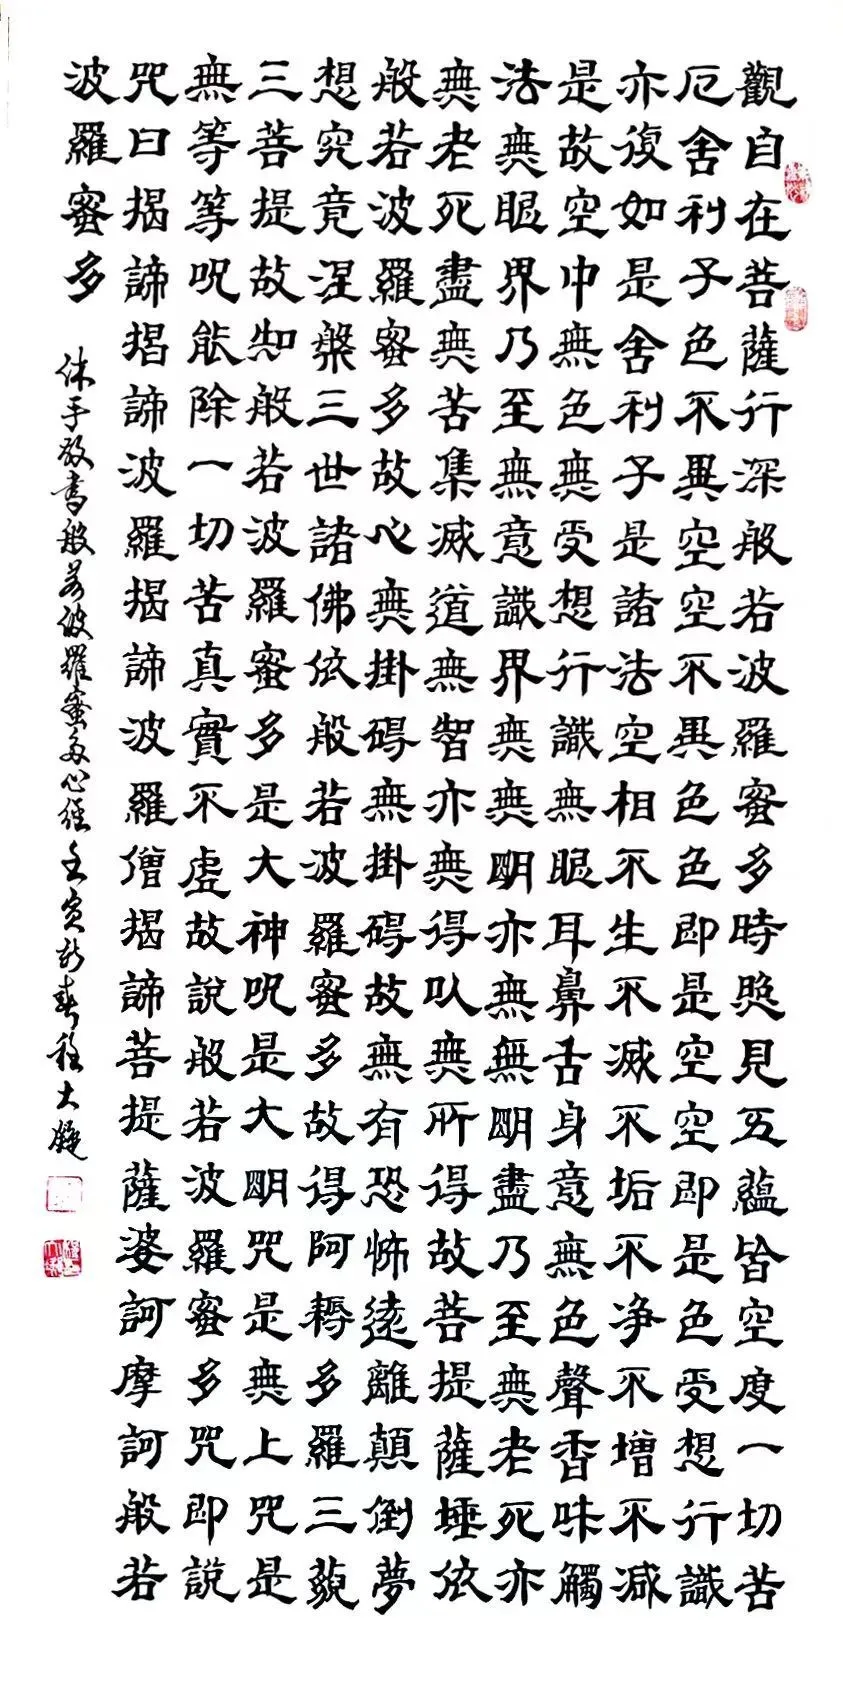 觀自在菩薩行深般若波羅蜜多時照見五蘊皆空度一切苦
厄舍利子色不異空空不異色色即是空空即是色受想行識
亦復如是舍利子是諸法空相不生不滅不垢不净不增不减
是故空中無色無受想行識無眼耳鼻舌身意無色聲香味觸
法無眼界乃至無意識界無無明亦無無明盡乃至無老死亦
無老死盡無苦集滅道無智亦無得以無所得故菩提薩埵依
般若波羅蜜多故心無掛碍無掛碍故無有恐怖遠離顛倒夢
想究竟涅槃三世諸佛依般若波羅蜜多故得阿耨多羅三藐
三菩提故知般若波羅蜜多是大神咒是大明咒是無上咒是
無等等呪能除一切苦真實不虛故說般若波羅蜜多咒即說
咒曰揭諦揭諦波羅揭諦波羅僧揭諦菩提薩婆訶摩訶般若
波羅蜜多
沐手敬書般若波羅蜜多心經壬寅新春程大